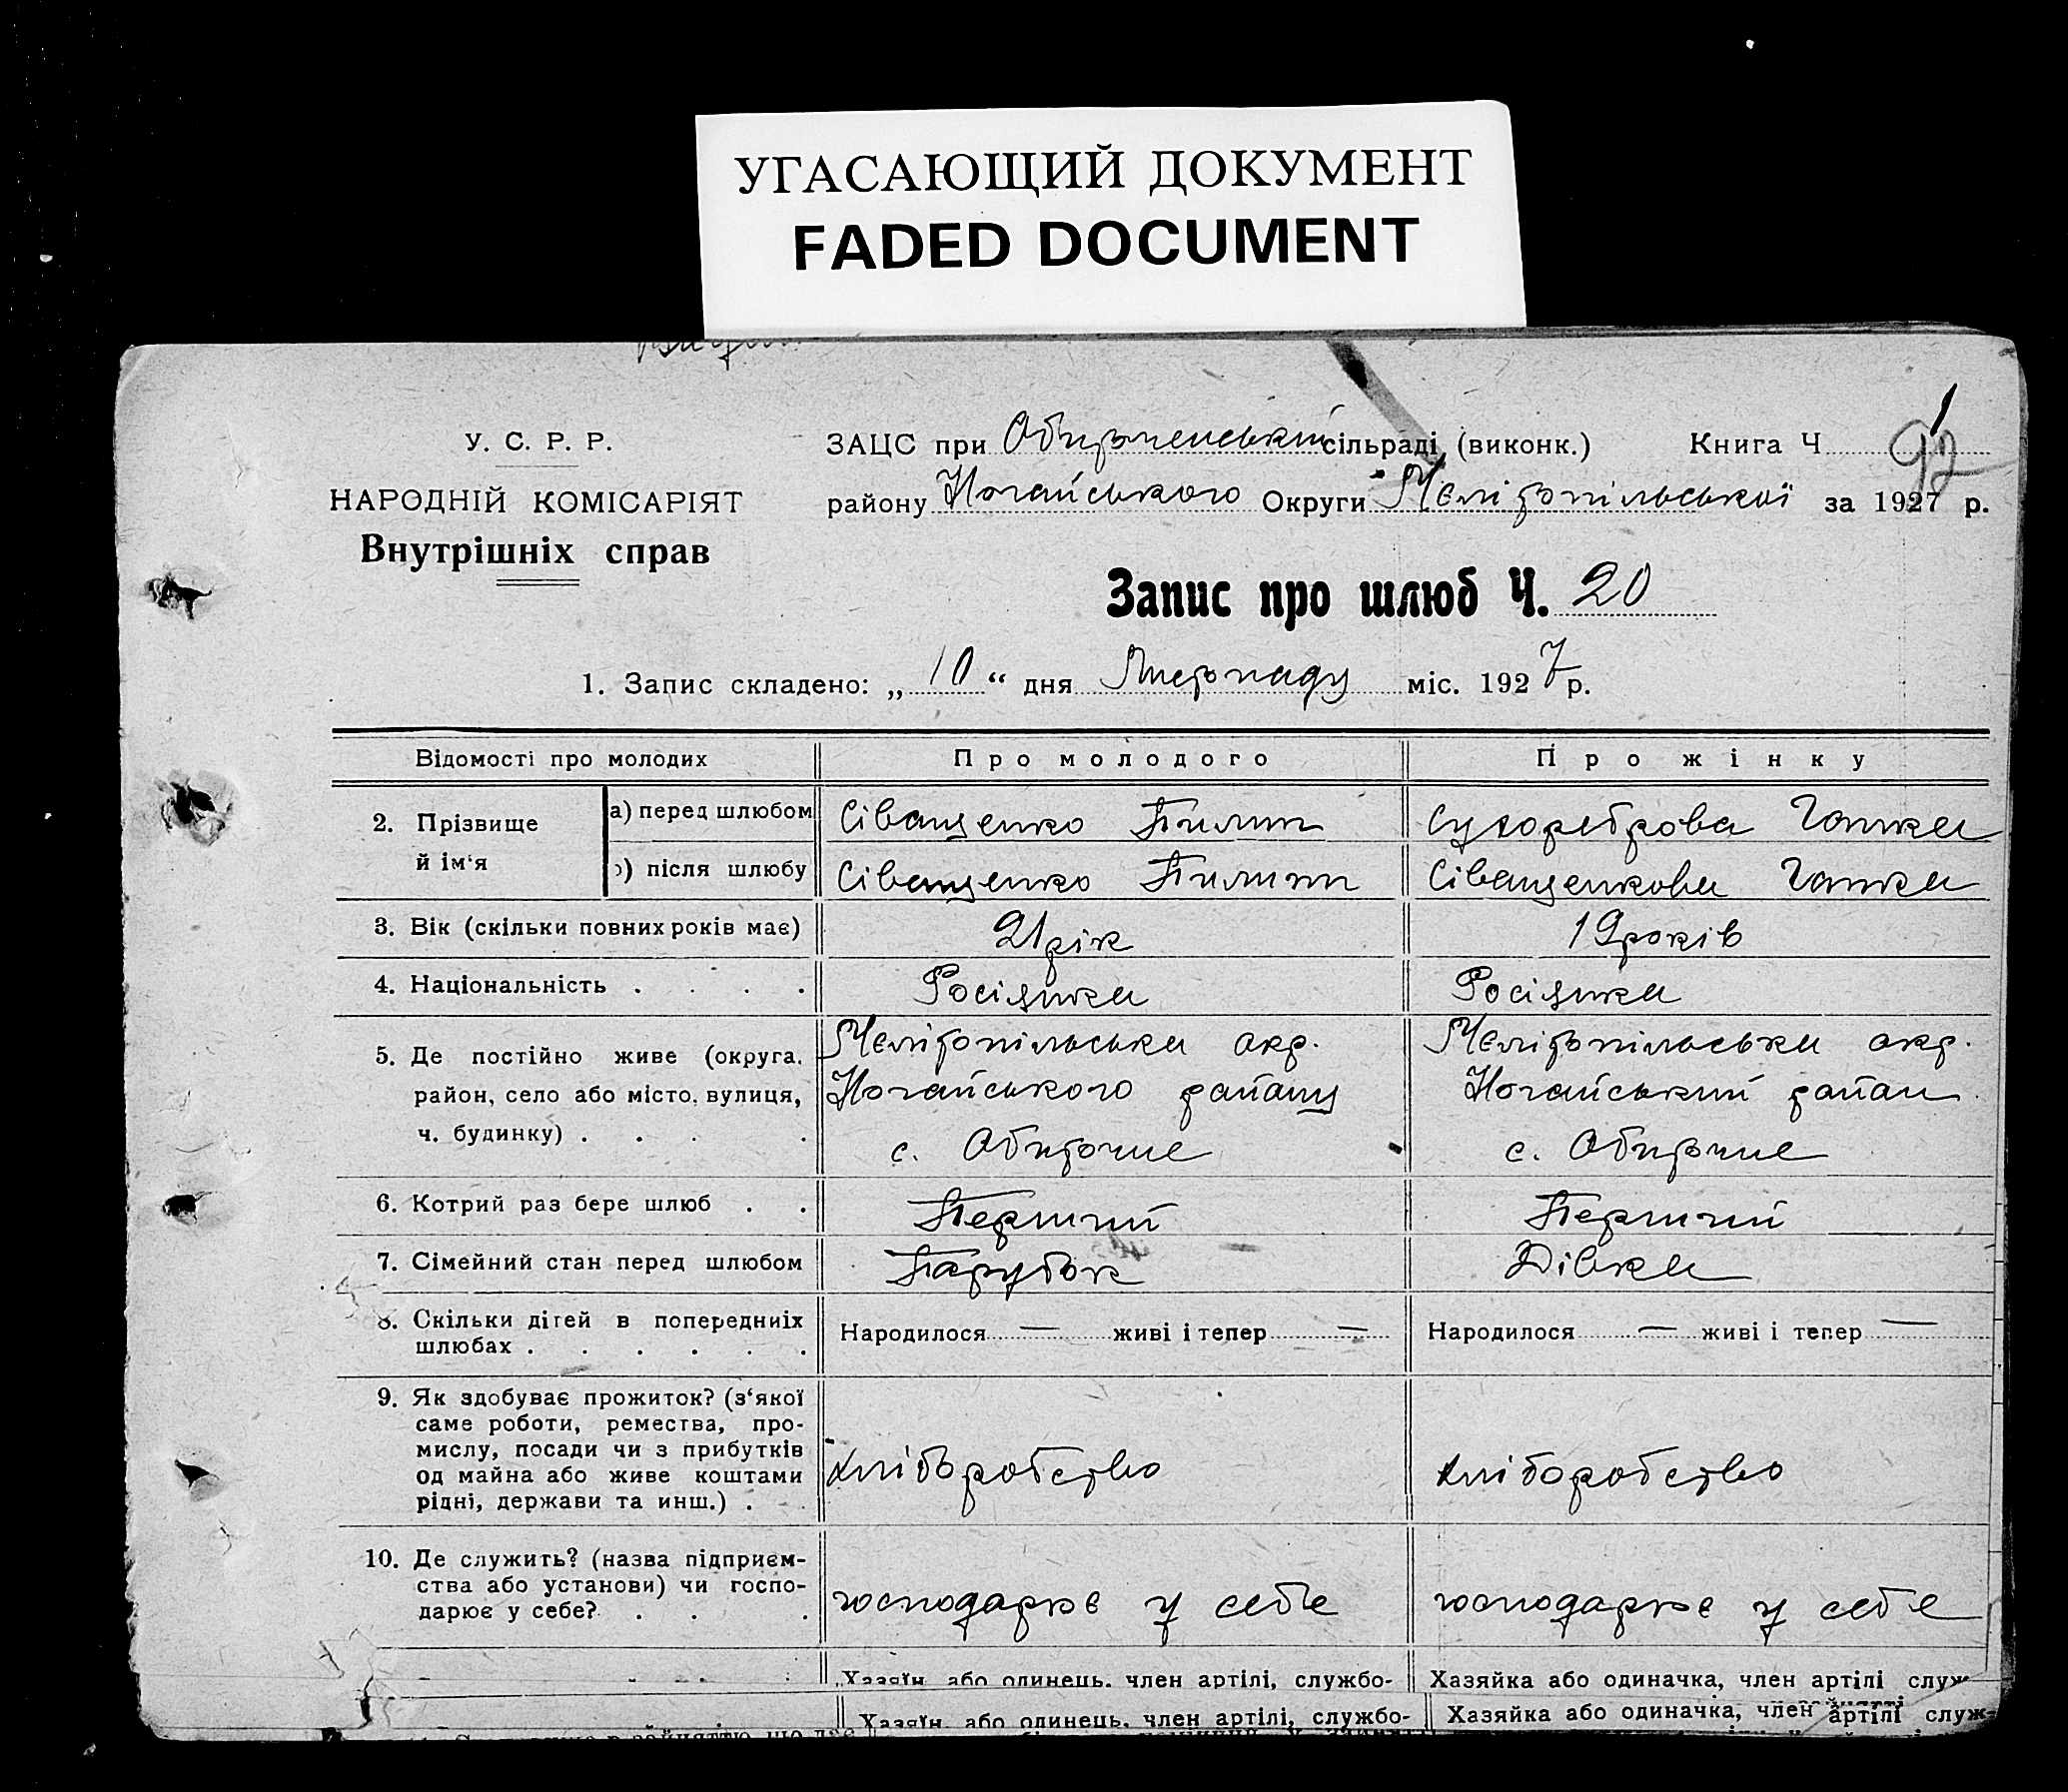 УГАСАЮЩИЙ ДОКУМЕНТ
FADED DOCUMENT
У. С. Р. Р.
НАРОДНІЙ КОМІСАРІЯТ
Внутрішніх справ
ЗАЦС при Обиточенській сільраді (виконк.) Книга Ч
району Ногайського Округи Мелітопільської за 1927 р.
Запис про шлюб Ч. 20
1. Запис складено: „ 10 “ дня Листопаду міс. 1927 р.
Відомості про молодих Про молодого Про жінку
2. Прізвище й ім'я
а) перед шлюбом Сіващенко Пилип Сухореброва Гапка
) після шлюбу Сіващенко Пилип Сіващенкова Гапка
3. Вік (скільки повних років має) 21 рік 19 років
4. Національність . . . . Росіянка Росіянка
5. Де постійно живе (округа, район, село або місто, вулиця, ч. будинку) . . . .
Мелітопільська окр. Мелітопільська окр.
Ногайського району Ногайський район
с. Обиточне с. Обиточне
6. Котрий раз бере шлюб . . Перший Перший
7. Сімейний стан перед шлюбом Парубок Дівка
8. Скільки дітей в попередниіх шлюбах . . . . . .
Народилося — живі і тепер — Народилося — живі і тепер —
9. Як здобуває прожиток? (з'якої
саме роботи, ремества, про-
мислу, посади чи з прибутків
од майна або живе коштами
рідні, держави та инш.) .
хліборобство хліборобство
10. Де служить? (назва підприєм-
ства або установи) чи госпо-
дарює у себе? . . .
господарює у себе господарює у себе
Хазяїн або одинець, член артілі, службо- Хазяйка або одиначка, член артілі служ
Хазяїн, або одинець, член артілі, службо- Хазяйка або одиначка, член артілі служ-